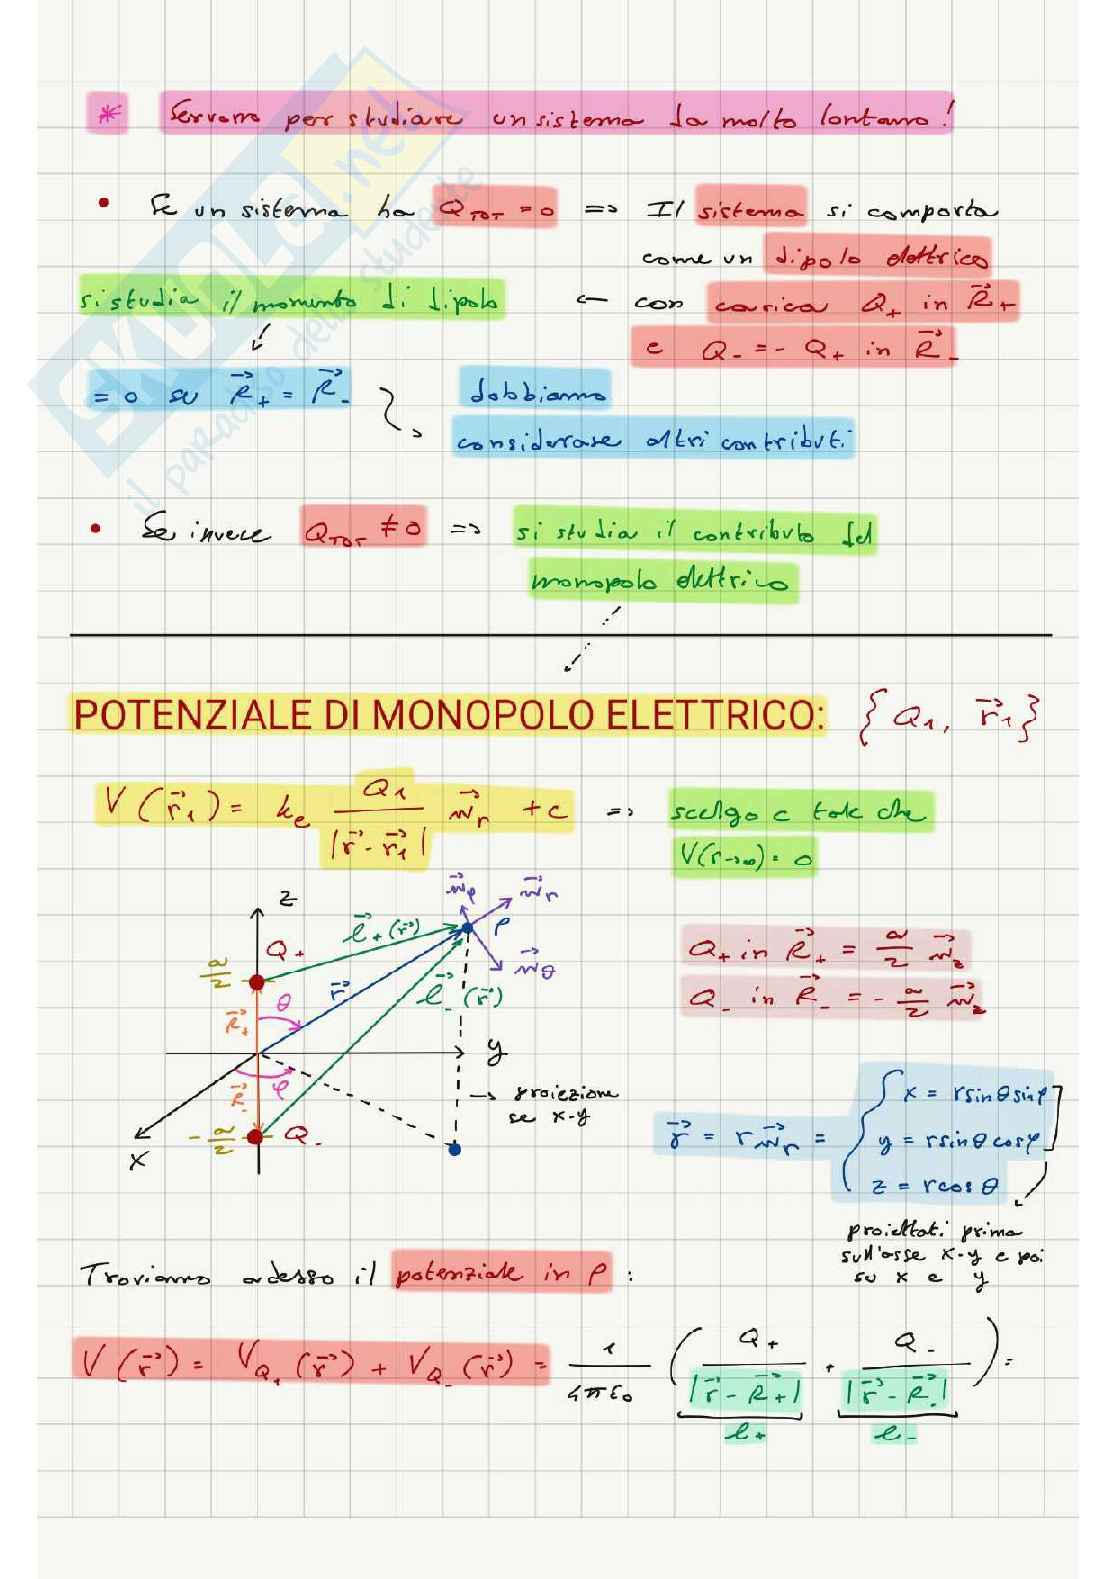 * Servono per studiare un sistema da molto lontano!
• Se un sistema ha Q_TOT = 0 => Il sistema si comporta
come un dipolo elettrico
si studia il momento di dipolo ← con carica Q₊ in R⃗₊
e Q₋ = - Q₊ in R⃗₋
= 0 su R⃗₊ = R⃗₋ dobbiamo
considerare altri contributi
• Se invece Q_TOT ≠ 0 => si studia il contributo del
monopolo elettrico
POTENZIALE DI MONOPOLO ELETTRICO: { Q₁, r⃗₁ }
V(r⃗₁) = k_e Q₁ / |r⃗ - r⃗₁| u⃗_r + c => scelgo c tale che
V(r→∞) = 0
z
Q₊
a/2
l⃗₊(r⃗)
u⃗_φ
u⃗_r
P
u⃗_θ
θ
r⃗
l⃗₋(r⃗)
R⃗₊
y
φ
R⃗₋
→ proiezione
su x-y
-a/2
Q₋
x
Q₊ in R⃗₊ = a/2 u⃗_z
Q₋ in R⃗₋ = - a/2 u⃗_z
r⃗ = r u⃗_r = { x = r sinθ sinφ
y = r sinθ cosφ
z = r cosθ
proiettati prima
sull'asse x-y e poi
su x e y
Troviamo adesso il potenziale in P :
V(r⃗) = V_Q₊(r⃗) + V_Q₋(r⃗) = 1/4πε₀ ( Q₊ / |r⃗ - R⃗₊| + Q₋ / |r⃗ - R⃗₋| ) =
l₊ l₋
SKUOLA.net
il paradiso dello studente